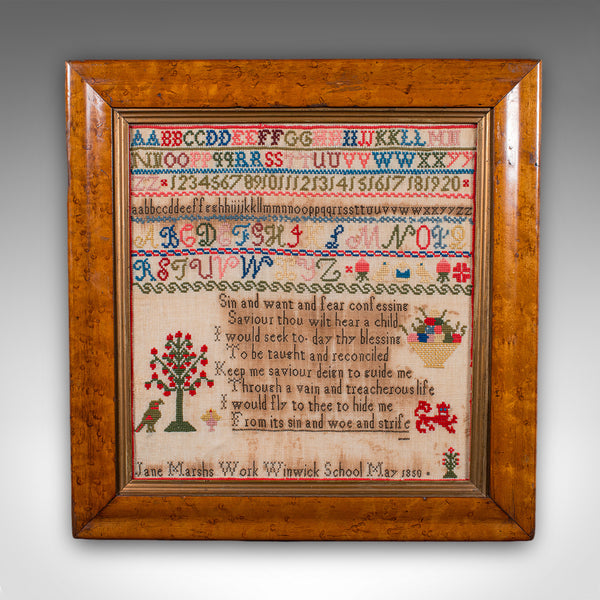 AABBCCDDEEFFGGHHIJJKKLLMM
NNOOPPqqRRSSTTUUVVWWXXYY
ZZ * 1234567891011121314151617181920 *
aabbccddeeffgghhiijjkkllmmnnooppqqrrssttuuvvwwxxyyzz
ABCDEFGHI L M N O P Q
R S T U V W X Y Z
Sin and want and fear confessing
Saviour thou wilt hear a child
I would seek to day thy blessing
To be taught and reconciled
Keep me saviour deign to guide me
Through a vain and treacherous life
I would fly to thee to hide me
From its sin and woe and strife
Jane Marshs Work Winwick School May 1850